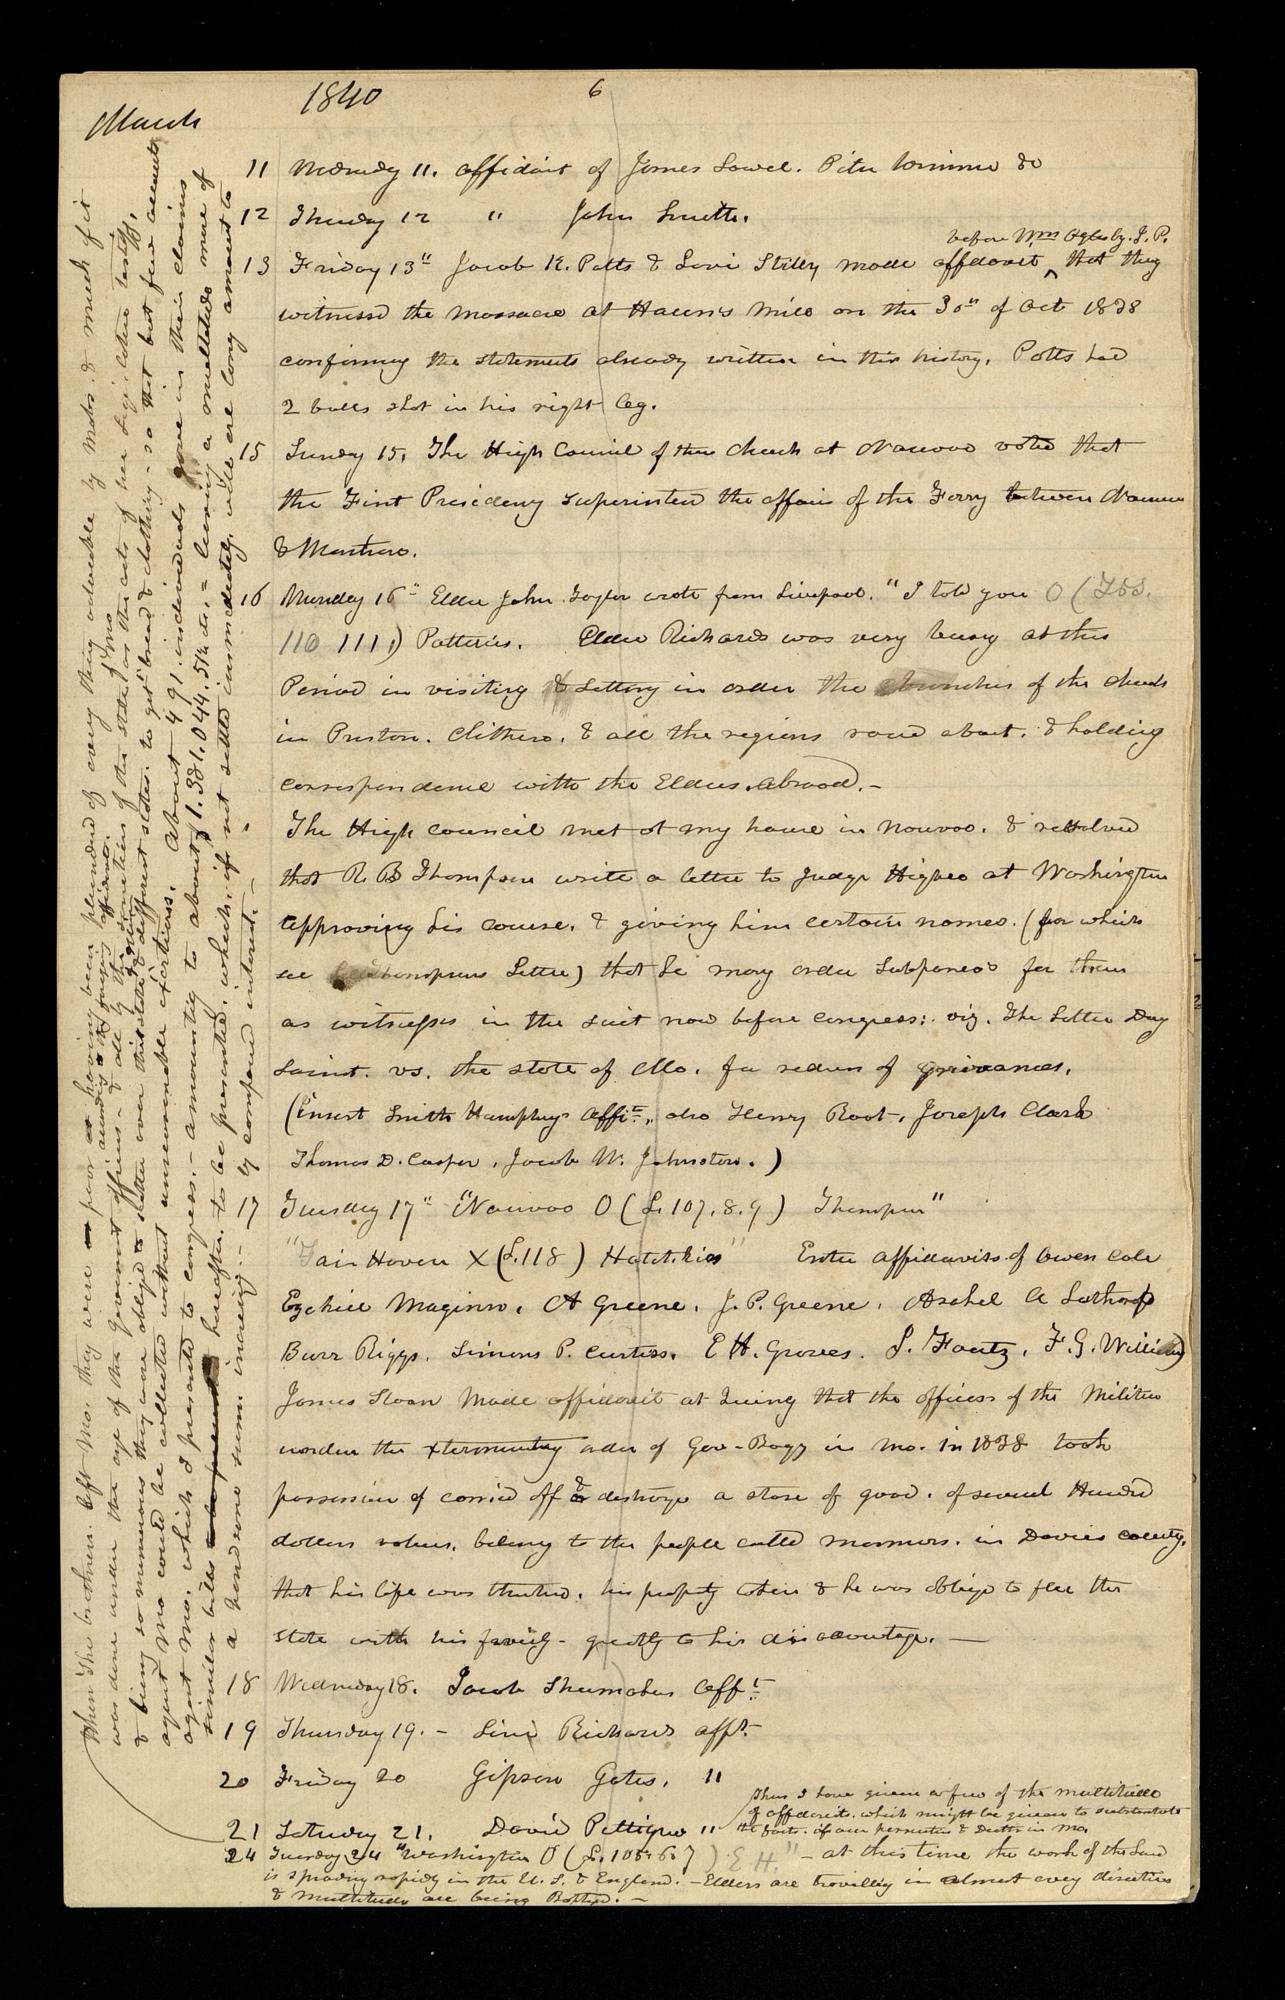 1840
6
March
11 Wednesday 11. affidavit of James Sowel. &c
12 Thursday 12 " John Smith.
before Wm Oglesby. J. P.
13 Friday 13" Jacob K. Potts & Levi Stilly made affidavit ^ that they
witnessd the massacre at Haun's Mill on the 30th of Oct 1838
confirming the statements already written in this history, Potts had
2 balls shot in his right leg.
15 Sunday 15. The High Council of the church at Nauvoo voted that
the First Presidency superinted the affairs of the Ferry between Nauvoo
& Montrose.
16 Monday 16" Elder John Taylor wrote from Liverpool. "I told you O (T&S.
110 111) Potteries. Elder Richards was very busy at this
Period in visiting & setting in order the branches of the church
in Preston. Clithero. & all the regions round about. & holding
correspondence with the Elders abroad. –
The High council met at my house in Nauvoo. & resolved
that R. B Thompson write a letter to Judge Higbee at Washington
approving his course. & giving him certain names. (for which
see Thompsons Letter) that he may order subpoenas for them
as witnesses in the suit now before congress: viz. The Latter Day
Saint. vs. the state of Mo. for redress of grievances.
(Insert Smith Humphrey Affit., also Henry Root, Joseph Clark
Thomas D. Casper, Jacob W. Johnston.)
17 Tuesday 17" "Nauvoo O (L. 107. 8. 9) Thompson"
"Fair Haven X (L. 118) Hotchkiss" Enter affidavits of Owen Cole
Ezekiel Maginn. A Greene. J. P. Greene. Asahel A Lathrop
Burr Riggs. Simons P. Curtiss. E H. Groves. J. Foutz. F. G. Williams
James Sloan Made affidavit at Quincy that the officers of the Militia
under the xterminating order of Gov – Boggs in Mo. in 1838 took
possession of carried off & destroyd a store of good. of several Hundred
dollars value. belong to the people called mormons. in Davies county.
that his life was threatned. his property taken & he was obliged to flee the
state with his family – greatly to his disadvantage. —
18 Wednesday 18. Jacob Shumaker Afft.
19 Thursday 19. – Levi Richards afft.
20 Friday 20 Gipson Gates. "
21 Saturday 21. David Pettigrew "
Thus I have given a few of the multitude
of affidavits. which might be given to substantiate
the facts. of our persecution & Death in Mo.
24 Tuesday 24 "Washington O (L. 105. 6. 7) E H." – at this time the work of the Lord
is spreading rapidly in the U. S. & England. – Elders are travelling in almost every direction
& multitude are being Baptizd. –
When The brethren. left Mo. they were poor having been plunderd of every thing valuable by mobs. & much of it
was done under the eye of the Government officers. & all by the sanction of the state, as the acts of her Legislature testify,
according to the foregoing affidavits.
& being so numerous they were obliged to scatter over this state & different states. to get bread & clothing – so that but few accounts
agent Mo could be collected without unreasonable exertions. About 491. individuals gave in their claims
agent Mo. which I presented to congress. – amounting to about $1.381.044.51½ cts. = leaving a multitude more of
similar bills to be presented hereafter. to be presented, which, if not settled immediately. will ere long amount to
a handsome sum. increasing – by compound interest. –